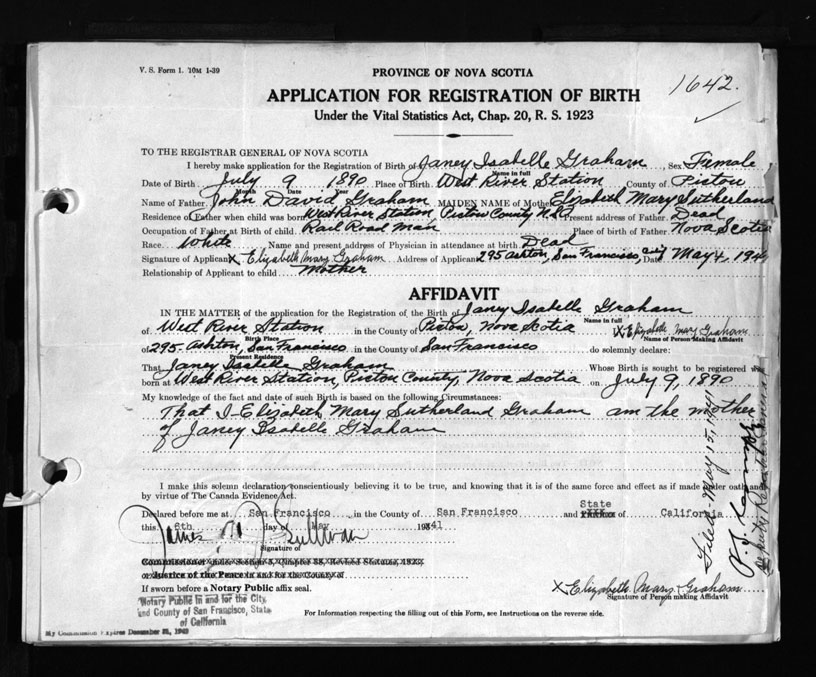 V. S. Form 1. 10M 1-39
1642.
PROVINCE OF NOVA SCOTIA
APPLICATION FOR REGISTRATION OF BIRTH
Under the Vital Statistics Act, Chap. 20, R. S. 1923
TO THE REGISTRAR GENERAL OF NOVA SCOTIA
I hereby make application for the Registration of Birth of Janey Isabelle Graham Sex Female
Name in full
Date of Birth July 9 1890 Place of Birth West River Station County of Pictou
Month Date Year
Name of Father John David Graham MAIDEN NAME of Mother Elizabeth Mary Sutherland
Residence of Father when child was born West River Station Pictou County N.S. Present address of Father Dead
Occupation of Father at Birth of child Rail Road Man Place of birth of Father Nova Scotia
Race White Name and present address of Physician in attendance at birth Dead
Signature of Applicant X Elizabeth Mary Graham Address of Applicant 295 Ashton, San Francisco, Date May 4, 194
Relationship of Applicant to child Mother
AFFIDAVIT
IN THE MATTER of the application for the Registration of the Birth of Janey Isabelle Graham
Name in full
of West River Station in the County of Pictou, Nova Scotia X Elizabeth Mary Graham
Birth Place Name of Person Making Affidavit
of 295 Ashton, San Francisco in the County of San Francisco do solemnly declare:
Present Residence
That Janey Isabelle Graham Whose Birth is sought to be registered was
born at West River Station, Pictou County, Nova Scotia on July 9, 1890
My knowledge of the fact and date of such Birth is based on the following Circumstances:
That I Elizabeth Mary Sutherland Graham am the mother
of Janey Isabelle Graham
I make this solemn declaration conscientiously believing it to be true, and knowing that it is of the same force and effect as if made under oath and
by virtue of The Canada Evidence Act.
State
Declared before me at San Francisco in the County of San Francisco and of California
this 6th day of May 1941
James M J Sullivan
Signature of
Commissioner under Section 3, Chapter 38, Revised Statutes, 1923
or Justice of the Peace in and for the County of
If sworn before a Notary Public affix seal.
Notary Public in and for the City
and County of San Francisco, State
of California
My Commission Expires December 31, 1942
X Elizabeth Mary Graham
Signature of Person making Affidavit
For Information respecting the filling out of this Form, see Instructions on the reverse side.
Filed May 15, 1941
Deputy Registrar General